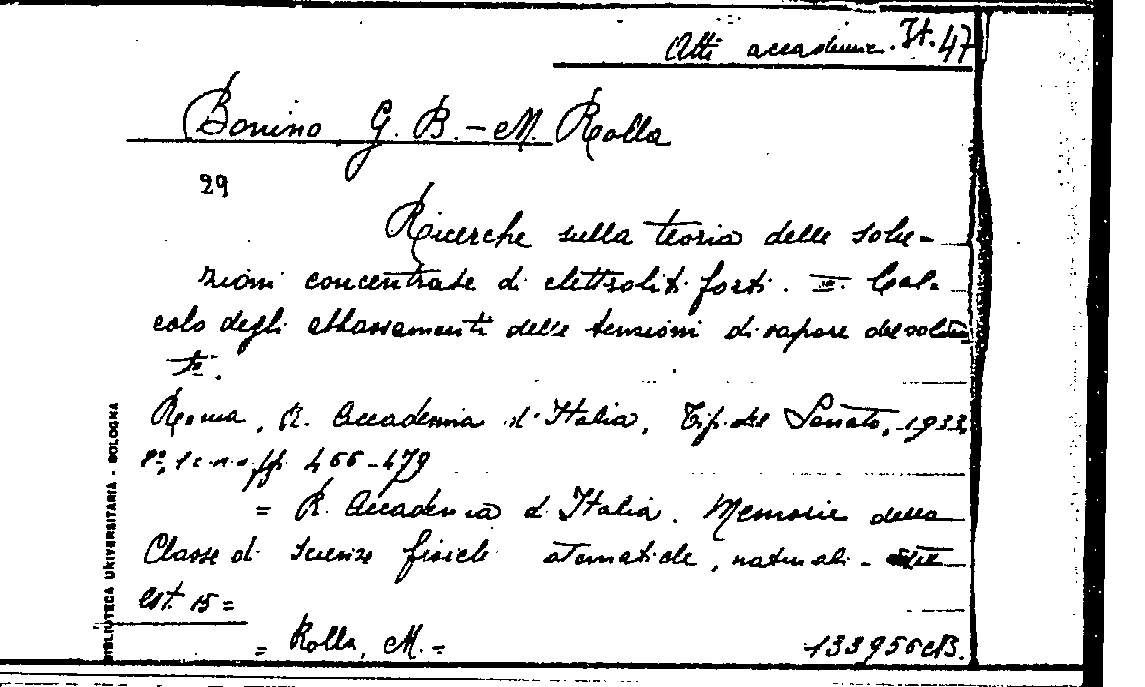 Atti accademie. It. 47
Bonino G. B. - M. Rolla
29
Ricerche sulla teoria delle solu-
zioni concentrate di elettroliti forti. II. Cal-
colo degli abbassamenti delle tensioni di vapore del solven
te.
Roma, R. Accademia d'Italia, Tip. del Senato, 1933
8°, pp. 466-479
= R. Accademia d'Italia. Memorie della
Classe di Scienze fisiche matematiche, naturali -
Est. 15 =
= Rolla, M. =
133956 B.
BIBLIOTECA UNIVERSITARIA - BOLOGNA